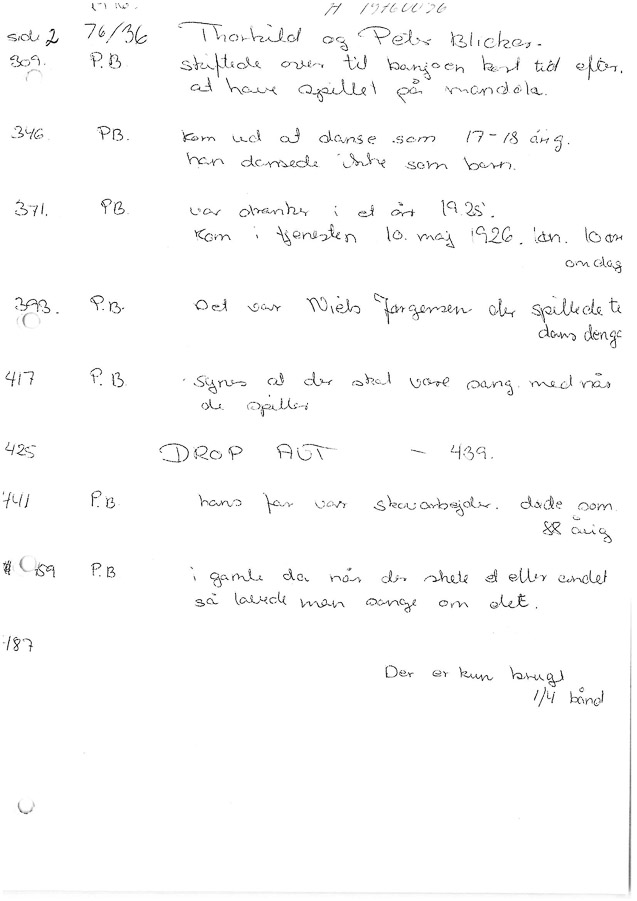 side 2 76/36 Thorkild og Peter Blicher.
309. P.B. skiftede over til banjoen kort tid efter.
at have spillet på mandola.
346. PB. kom ud at danse som 17-18 årig.
han dansede ikke som barn.
371. PB i et år 1925.
kom i tjenesten 10. maj 1926.
onsdag
393. P.B. Det var Niels Jørgensen der spillede
dans
417 P.B synes at der skal være sang med når
de spiller
425 DROP AUT - 439.
441 P.B hans far var skovarbejder. døde som
88 årig
P.B i gamle da når der skete et eller andet
så lavede man sange om det.
187
Der er kun brugt
1/4 bånd